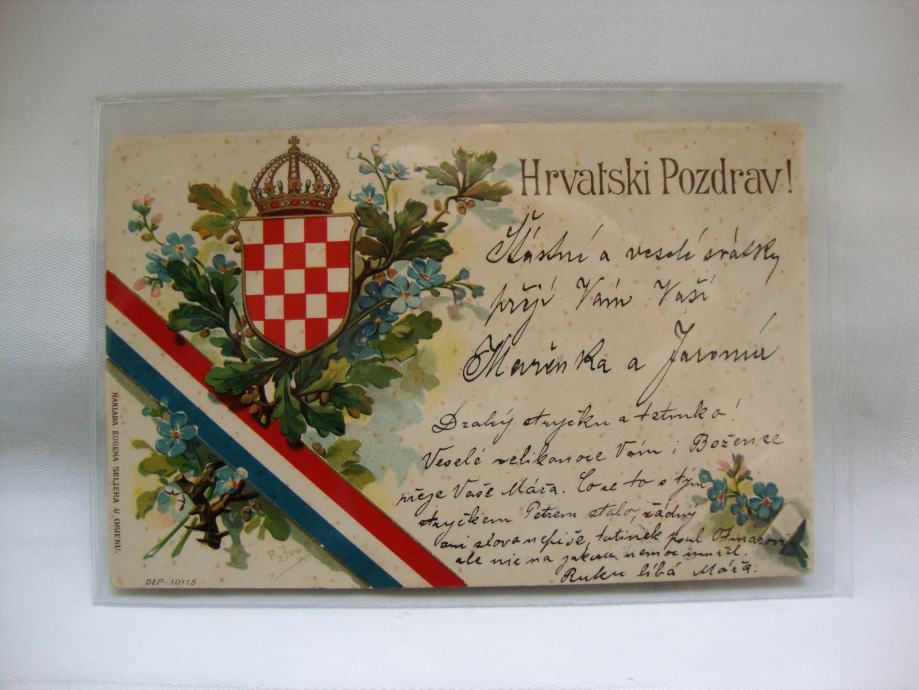 Hrvatski Pozdrav!
Šťastné a veselé svátky
přejí Vám Vaši
Mařenka a Jaromír
Drahý strýčku a tetinko!
Veselé velikonoce Vám i Božence
přeje Vaše Máňa. Co se to s tým
strýčkem Petrem stalo, žádný
ani slova nepíše, tatínek psal
ale nic na jakou nemoc umřel.
Ruku líbá Máňa.
NAKLADA EUGENA SELZERA U OSIEKU.
DEP. 10115